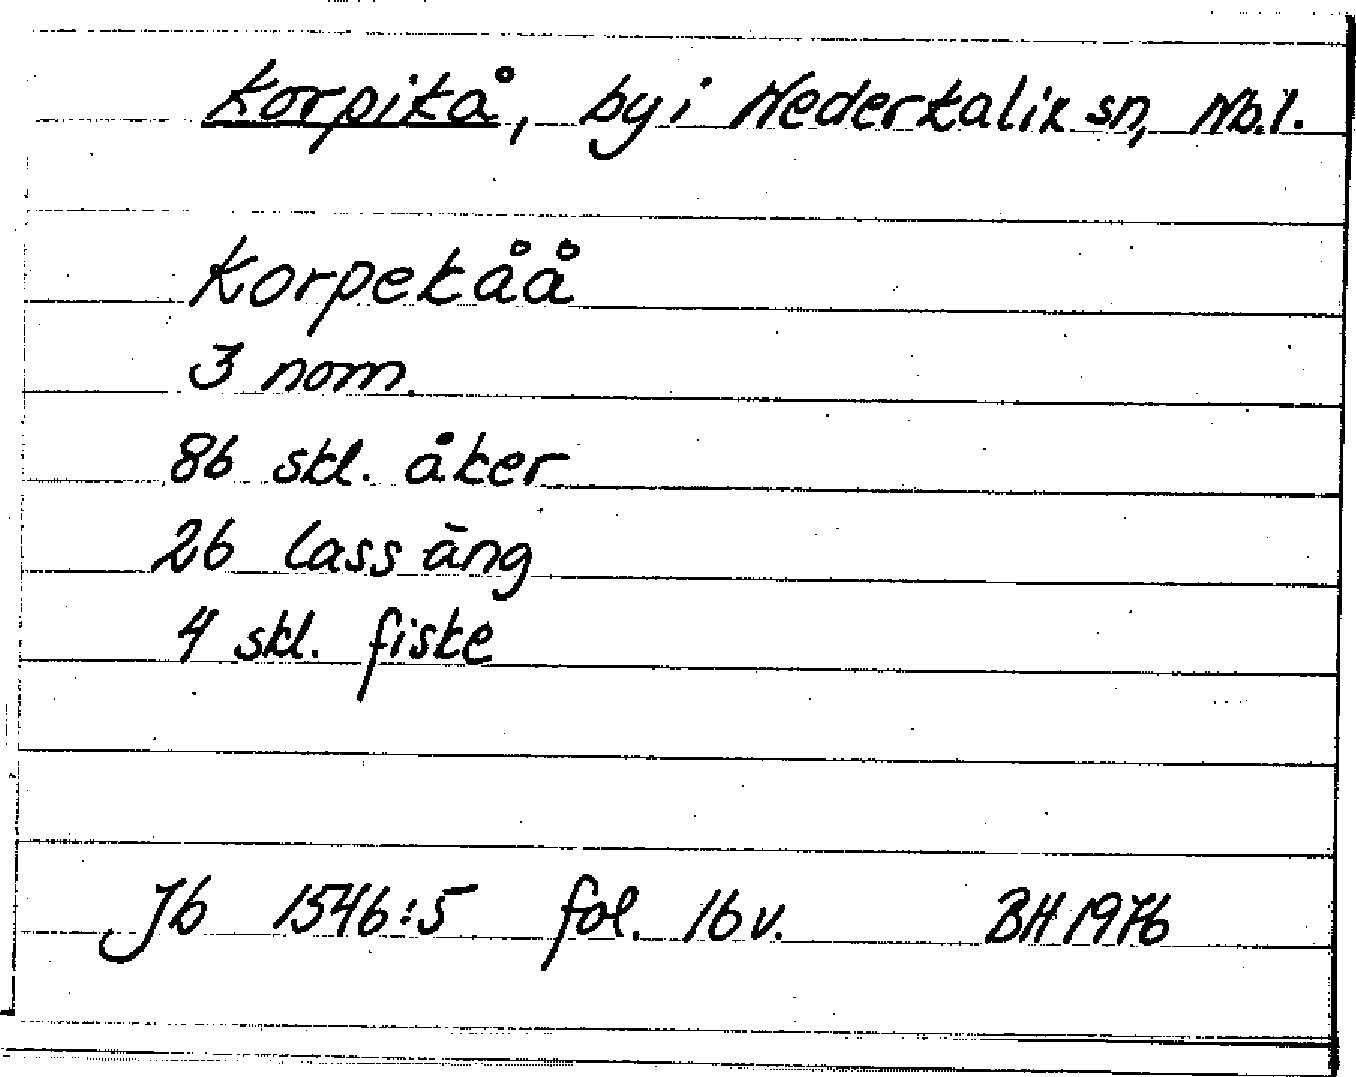 Korpikå, by i Nederkalix sn, Nb.l.
Korpekåå
3 nom.
86 skl. åker
26 lass äng
4 skl. fiske
Jb 1546:5 fol. 16 v. BH 1976